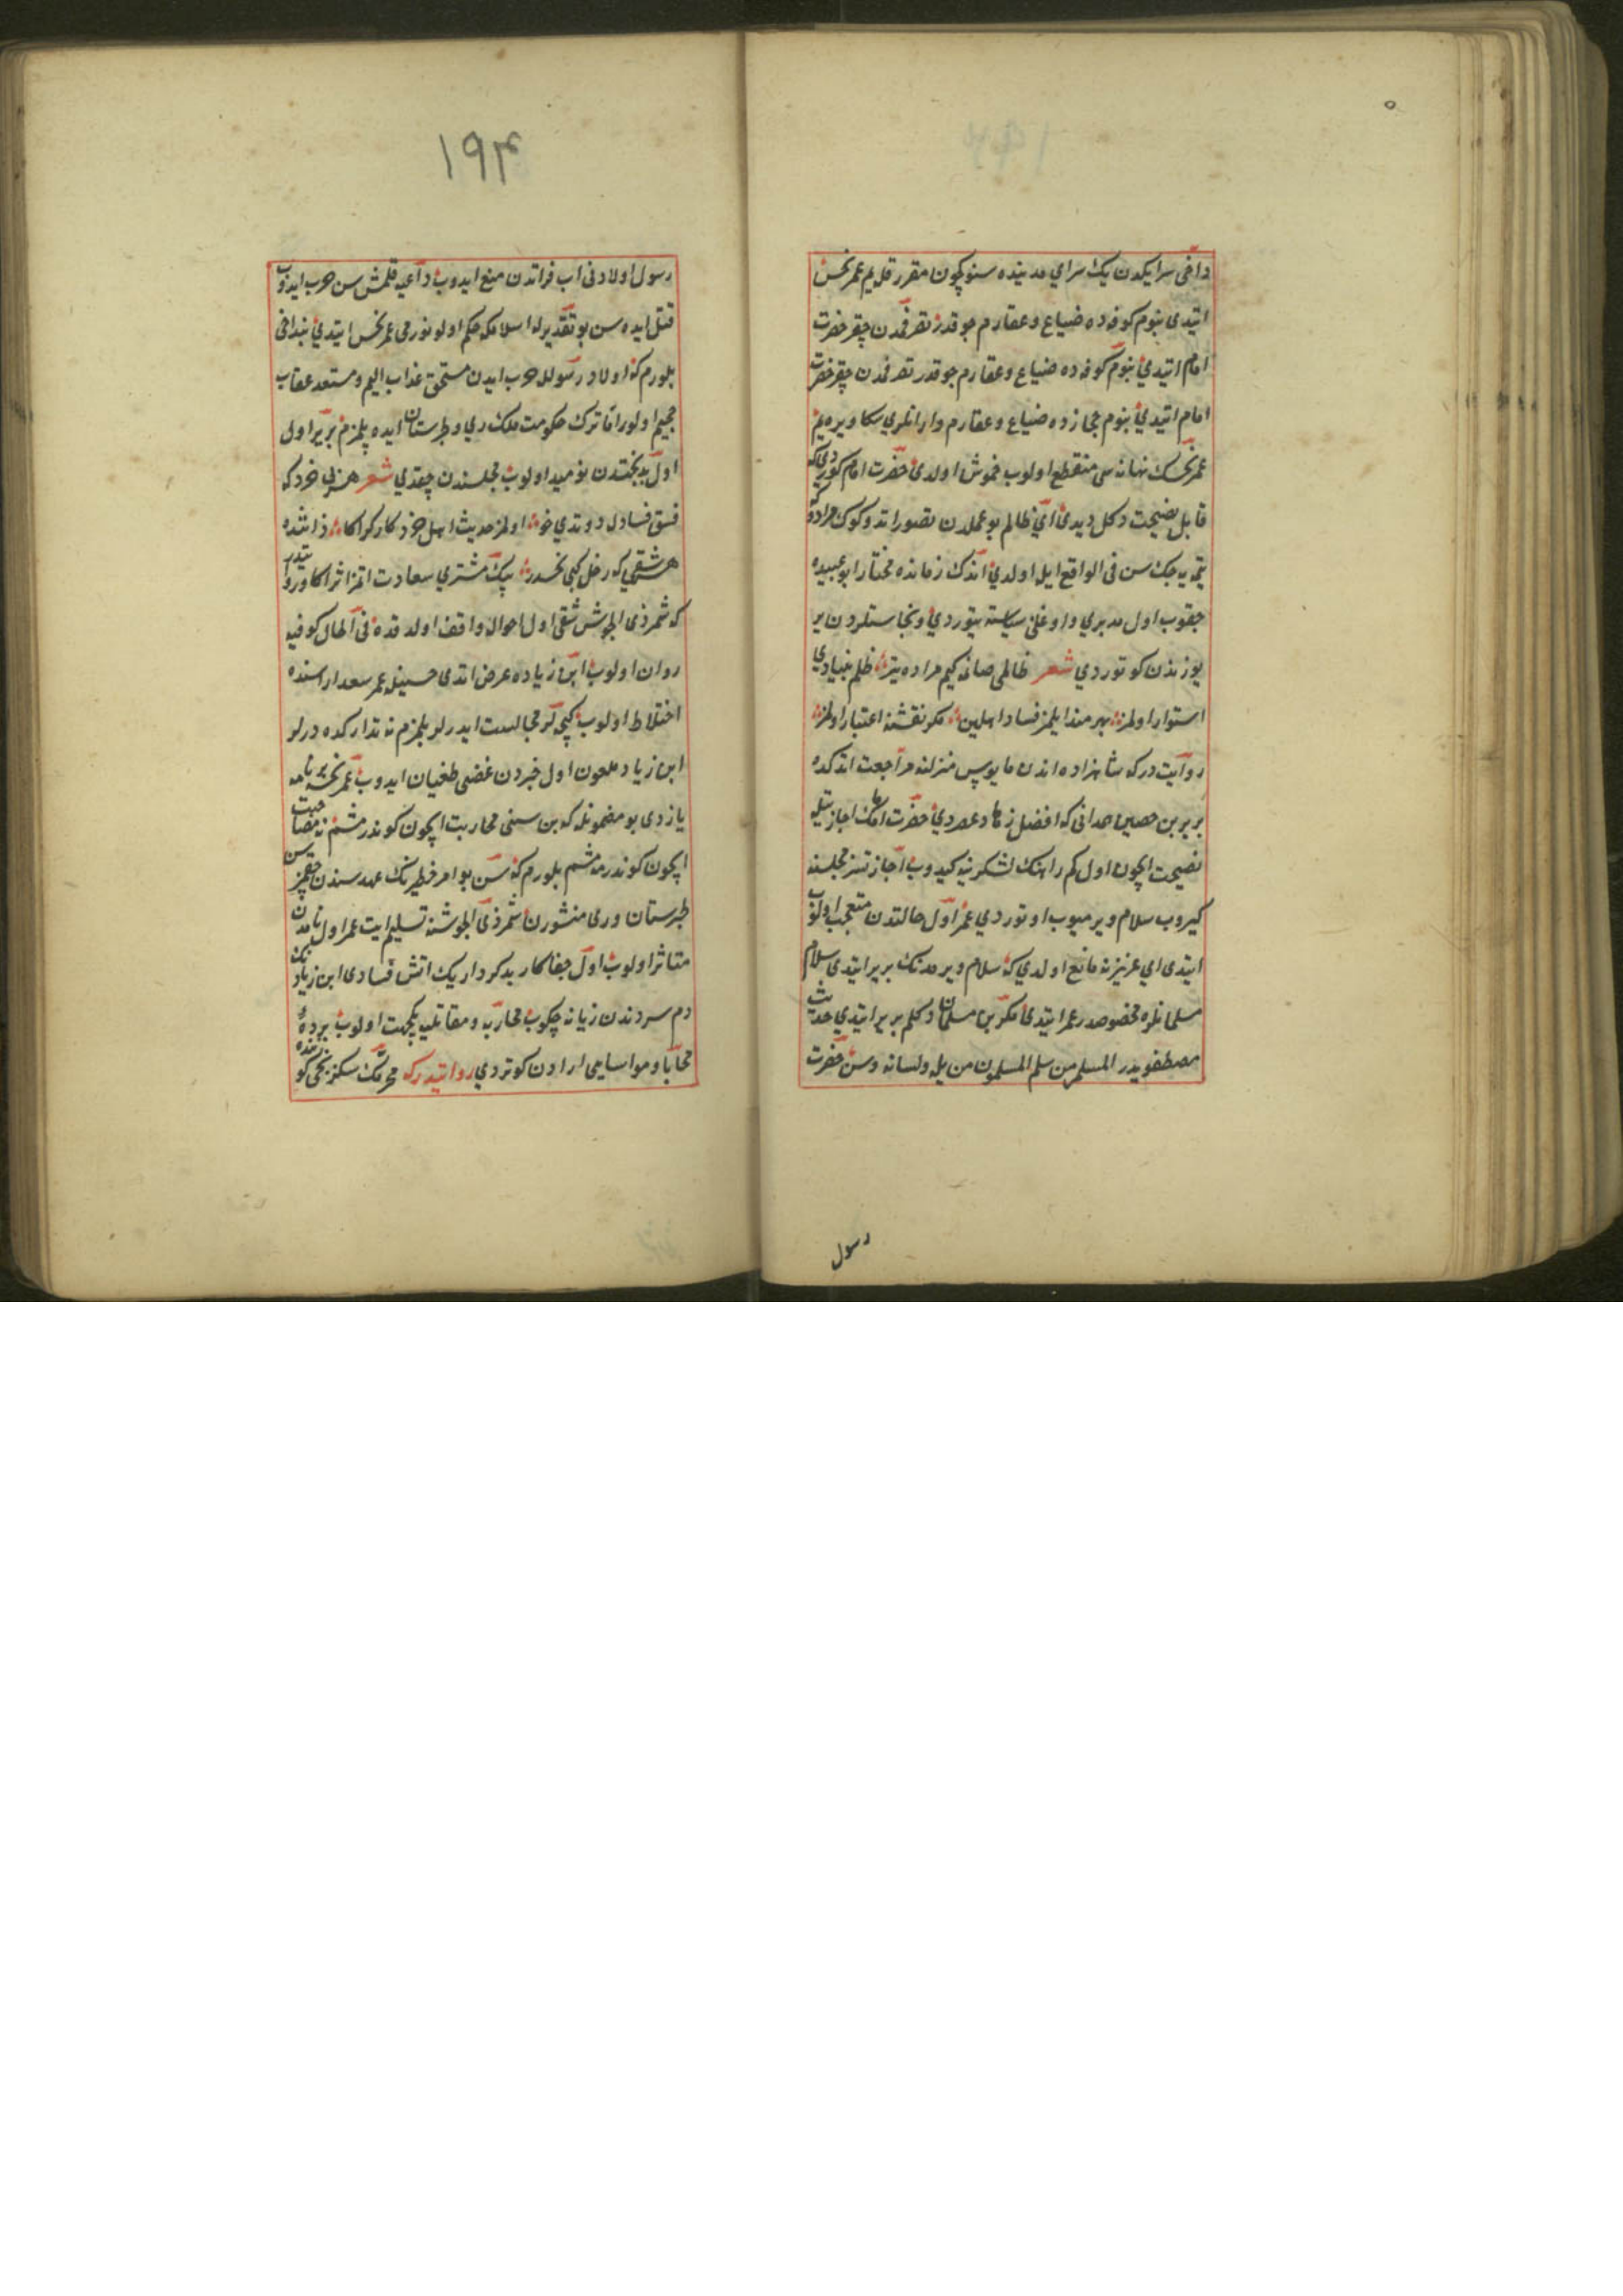 داخی سرایکدن یک سرای مدینده سنوچون مقرر قلیم عمر نحس
ایتدی بنوم کوفه ده ضیاع و عقارم چوقدر تصرفمدن چقر حضرت
امام ایتدی بنوم کوفه ده ضیاع و عقارم چوقدر تصرفمدن چقر حضرت
امام ایتدی بنوم حجازده ضیاع و عقارم وار انلری سکا ویره یم
عمر نحسک بهانه سی منقطع اولوب خموش اولدی حضرت امام کوردی که
قابل نصیحت دکل دیدی ای ظالم بو عملدن تصور اتدوکوک مراده
یتمیه جک سن فی الواقع ایله اولدی اندک زمانده مختار ابو عبیده
چقوب اول مدبری و اوغلن سیاسته یتوردی و نجاستلردن یر
یوزندن کوتوردی شعر ظالمی صانه کیم مراده یتر ظلم بنیادی
استوار اولمز بهره مند ایلمز فساد اهلین مکر نقشنه اعتبار اولمز
روایت درکه شاهزاده اندن مایوس منزلنه مراجعت اتدکده
بریر بن حصین همدانی که افضل زهاد عصر دی حضرت امامک اجازتیله
نصیحت ایچون اول کم راهنک لشکرینه کیدوب اجازتسز مجلسنه
کیروب سلام ویرمیوب اوتوردی عمر اول حالتدن متعجب اولوب
ایتدی ای عزیز نه مانع اولدی که سلام ویرمدنک بریر ایتدی سلام
مسلمانلره مخصوصدر عمر ایتدی مکر بن مسلمان دکلم بریر ایتدی حدیث
مصطفویدر المسلم من سلم المسلمون من یده و لسانه و سن حضرت
رسول
۱۹۴
رسول اولادنی اب فراتدن منع ایدوب داعیه قلمش سن حرب ایدوب
قتل ایده سن بو تقدیرله اسلامکه حکم اولونورمی عمر نحس ایتدی بنداخی
بلورم که اولاد رسولله حرب ایدن مستحق عذاب الیم و مستعد عقاب
جحیم اولور اما ترک حکومت ملک ری و طبرستان ایده بیلمزم بریر اول
اول بدبختدن نومید اولوب مجلسندن چقدی شعر هنربی خرد که
فسق فسادله دوتدی خو اولمز حدیث اهل خرد کارکر اکا ذاتنده
هر شقی که زحل کبی نحسدر پیک مشتری سعادت اتمز اثر اکا روایتدر
که شمر ذی الجوشن شقی اول احواله واقف اولدقده فی الحال کوفیه
روان اولوب ابن زیاده عرض اتدی حسینله عمر سعد اراسنده
اختلاط اولوب کیجه لر مجالست ایدرلر بلمزم نه تدارکده درلر
ابن زیاد ملعون اول خبردن غضبی طغیان ایدوب عمر نحسه بر نامه
یازدی بو مضمونله که بن سنی محاربت ایچون کوندرمشم نه مصاحبت
ایچون کوندرمه مشم بلورم که سن بو امر خطیرنک عهده سندن چقمزسن
طبرستان و ری منشورن شمر ذی الجوشنه تسلیم ایت عمر اول نامه دن
متاثر اولوب اول جفاکار بدکردار یک اتش فسادی ابن زیادنک
دم سردندن زبانه چکوب محاربه و مقاتلیه یکجهت اولوب پرده
محابا و مواسایی ارادن کوتردی روایتدرکه محرمک سکزنجی کوننده